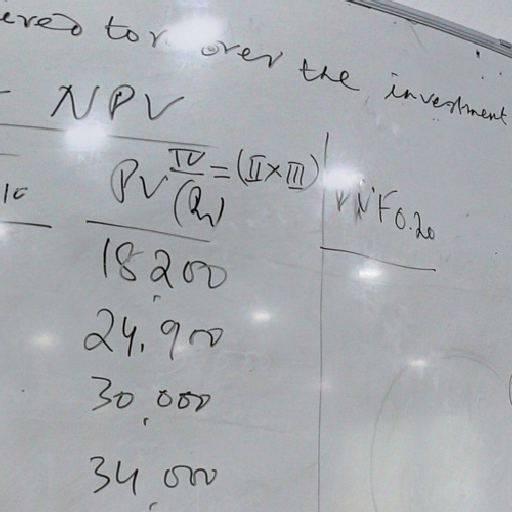 over the investment
NPV
PV IV = (II × III)
(Rs)
F0.20
18,200
24,900
30,000
34,000